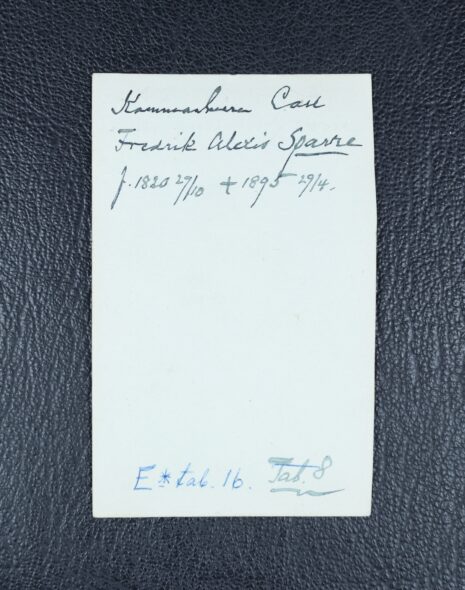 Kammarherren Carl
Fredrik Alexis Sparre
f. 1820 29/10 + 1895 29/4.
E * tab. 16. Tab. 8